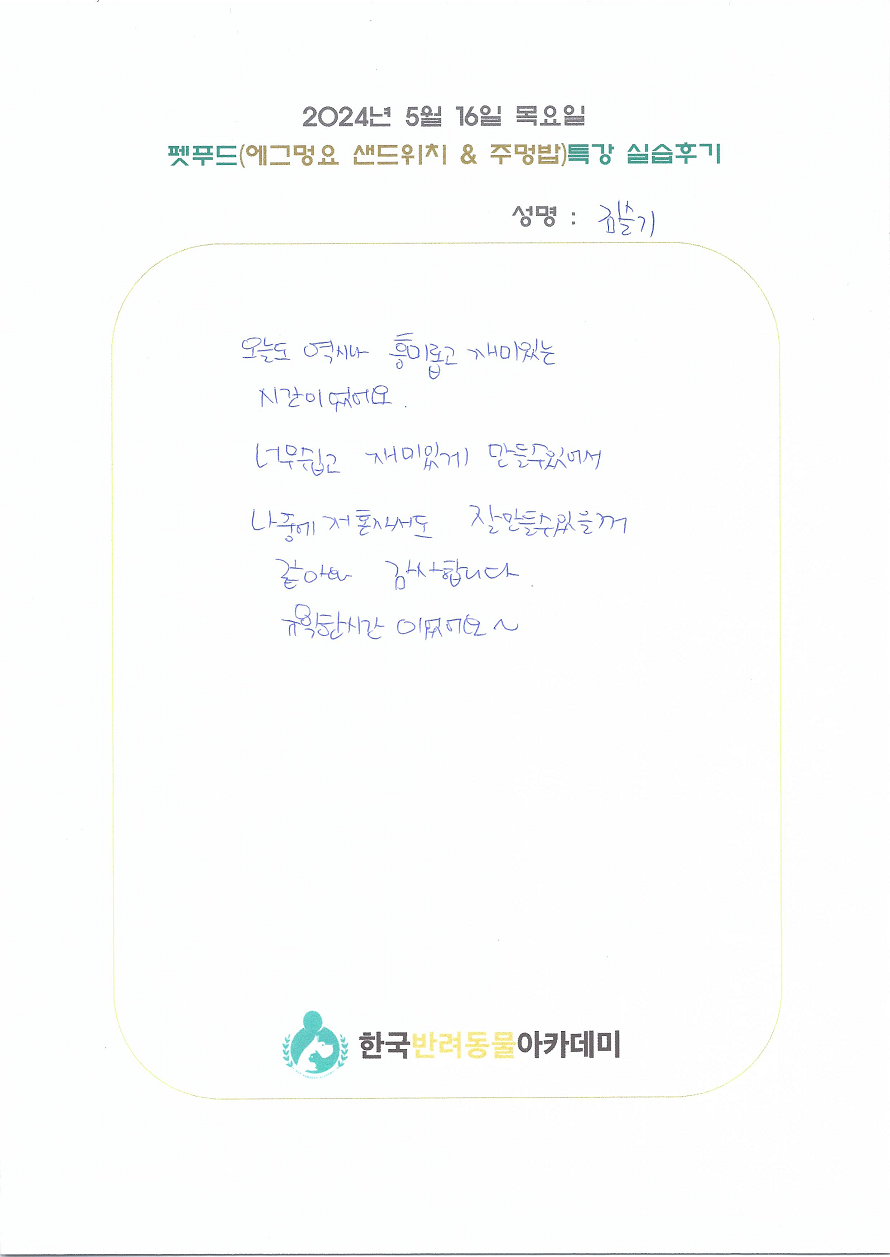 2024년 5월 16일 목요일
펫푸드(에그멍요 샌드위치 & 주멍밥)특강 실습후기
성명 : 김슬기
오늘도 역시나 흥미롭고 재미있는
시간이였어요.
너무쉽고 재미있게 만들수있어서
나중에 저 혼자서도 잘만들수있을꺼
같아요 감사합니다.
유익한시간 이였어요~
한국반려동물아카데미